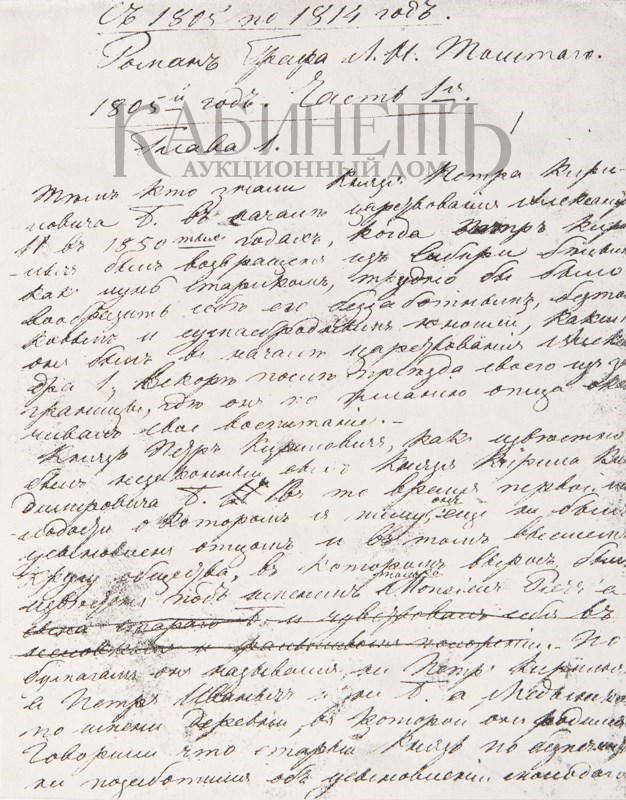 Съ 1805 по 1814 годъ.
Романъ Графа Л. Н. Толстаго.
1805й годъ. Часть 1я.
КАБИНЕТЪ
АУКЦИОННЫЙ ДОМ
Глава 1.
Тѣмъ кто знали Князя Петра Кири-
ловича Б. въ началѣ царствованія Александра
II въ 1850тыхъ годахъ, когда Петръ Кири-
лычъ былъ возвращенъ изъ Сибири бѣлымъ
какъ лунь старикомъ, трудно бы было
вообразить себѣ его беззаботнымъ, безтол-
ковымъ и сумасброднымъ юношей, какимъ
онъ былъ въ началѣ царствованія Алексан-
дра I, вскорѣ послѣ пріѣзда своего изъ за
границы, гдѣ онъ по желанію отца окан-
чивалъ свое воспитаніе. –
Князь Петръ Кириловичъ, какъ извѣстно
былъ незаконный сынъ Князя Кирила Вла-
димировича Б. Въ то время
о которомъ я пишу, онъ еще не былъ
усыновленъ отцомъ и въ томъ высшемъ
кругу общества, въ которомъ выросъ, былъ
извѣстенъ подъ именемъ только Monsieur Pierr'а
сына стараго Б. и чувствовалъ себя въ
По
бумагамъ онъ назывался, не Петръ Кирилычъ
а Петръ Иванычъ и не Б. а Медынской
по имени деревни, въ которой онъ родился
Говорили что старый Князь по безпечности
не позаботился объ усыновленіи молодаго